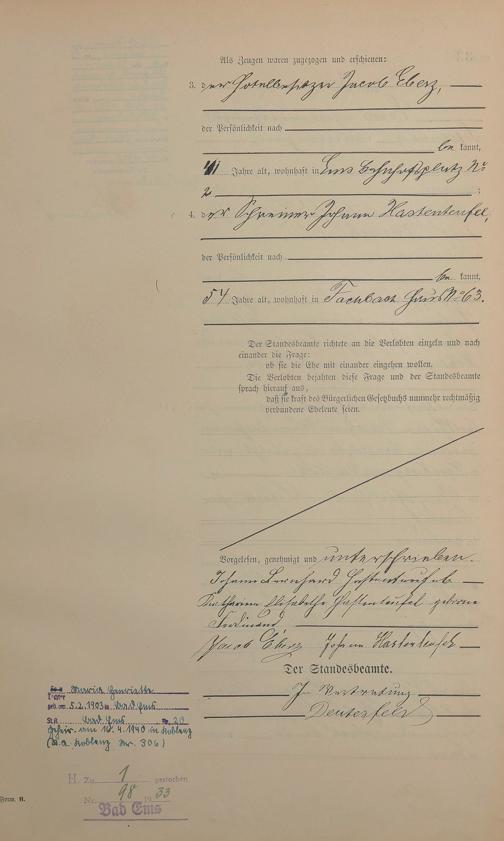 Als Zeugen waren zugezogen und erschienen:
3. der Hotelbesitzer Jacob Eberz,
der Persönlichkeit nach
be kannt,
41 Jahre alt, wohnhaft in Ems Bahnhofsplatz No
2 ;
4. der Schreiner Johann Hastenteufel,
der Persönlichkeit nach
be kannt,
54 Jahre alt, wohnhaft in Fachbach Haus No 63.
Der Standesbeamte richtete an die Verlobten einzeln und nach
einander die Frage:
ob sie die Ehe mit einander eingehen wollen.
Die Verlobten bejahten diese Frage und der Standesbeamte
sprach hierauf aus,
daß sie kraft des Bürgerlichen Gesetzbuchs nunmehr rechtmäßig
verbundene Eheleute seien.
Vorgelesen, genehmigt und unterschrieben.
Johann Bernhard Hastenteufel
Katharina Elisabetha Hastenteufel geborene
Ferdinand
Jacob Eberz Johann Hastenteufel
Der Standesbeamte.
In Vertretung
Maria Henriette
geb. am 5.2.1903 in Bad Ems
St.A. Bad Ems Nr. 20
geheir. am 4.1940 in Koblenz
(St.A. Koblenz Nr. 306)
H. Zu 1 gestorben
Nr. 98 1933
Bad Ems
Form. B.